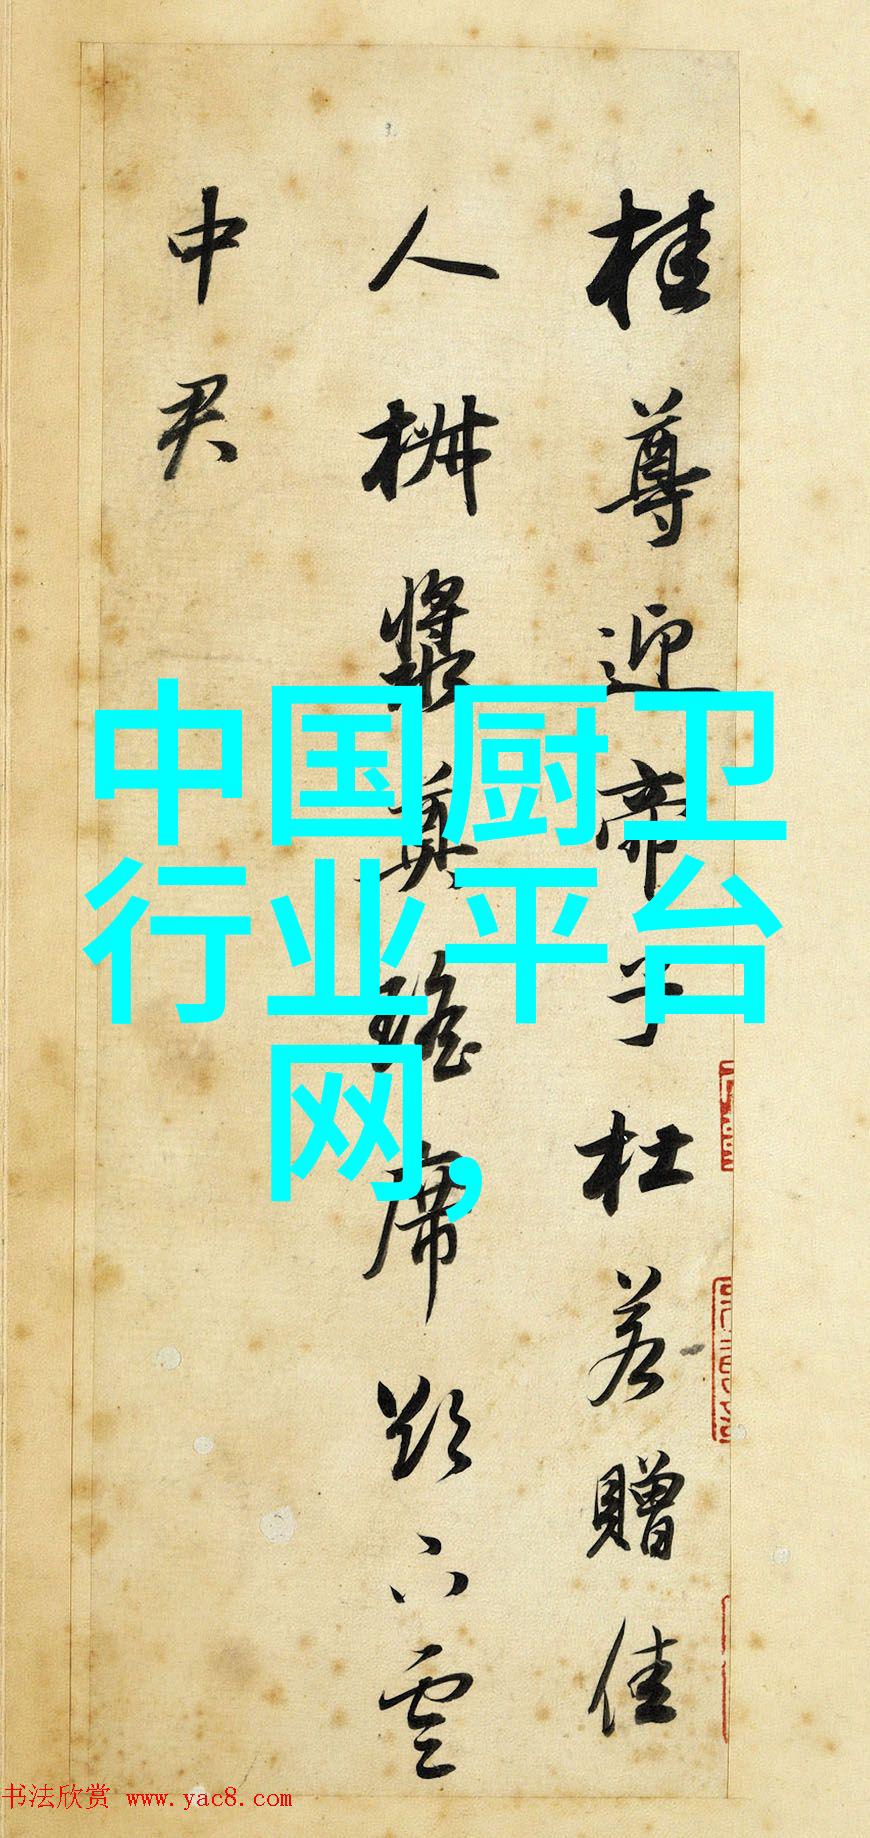 桂尊迎帝子杜若贈佳
人椒漿奠瑤席欲下雲
中君
中国厨卫
行业平台
网,
书法欣赏 www.yac8.com